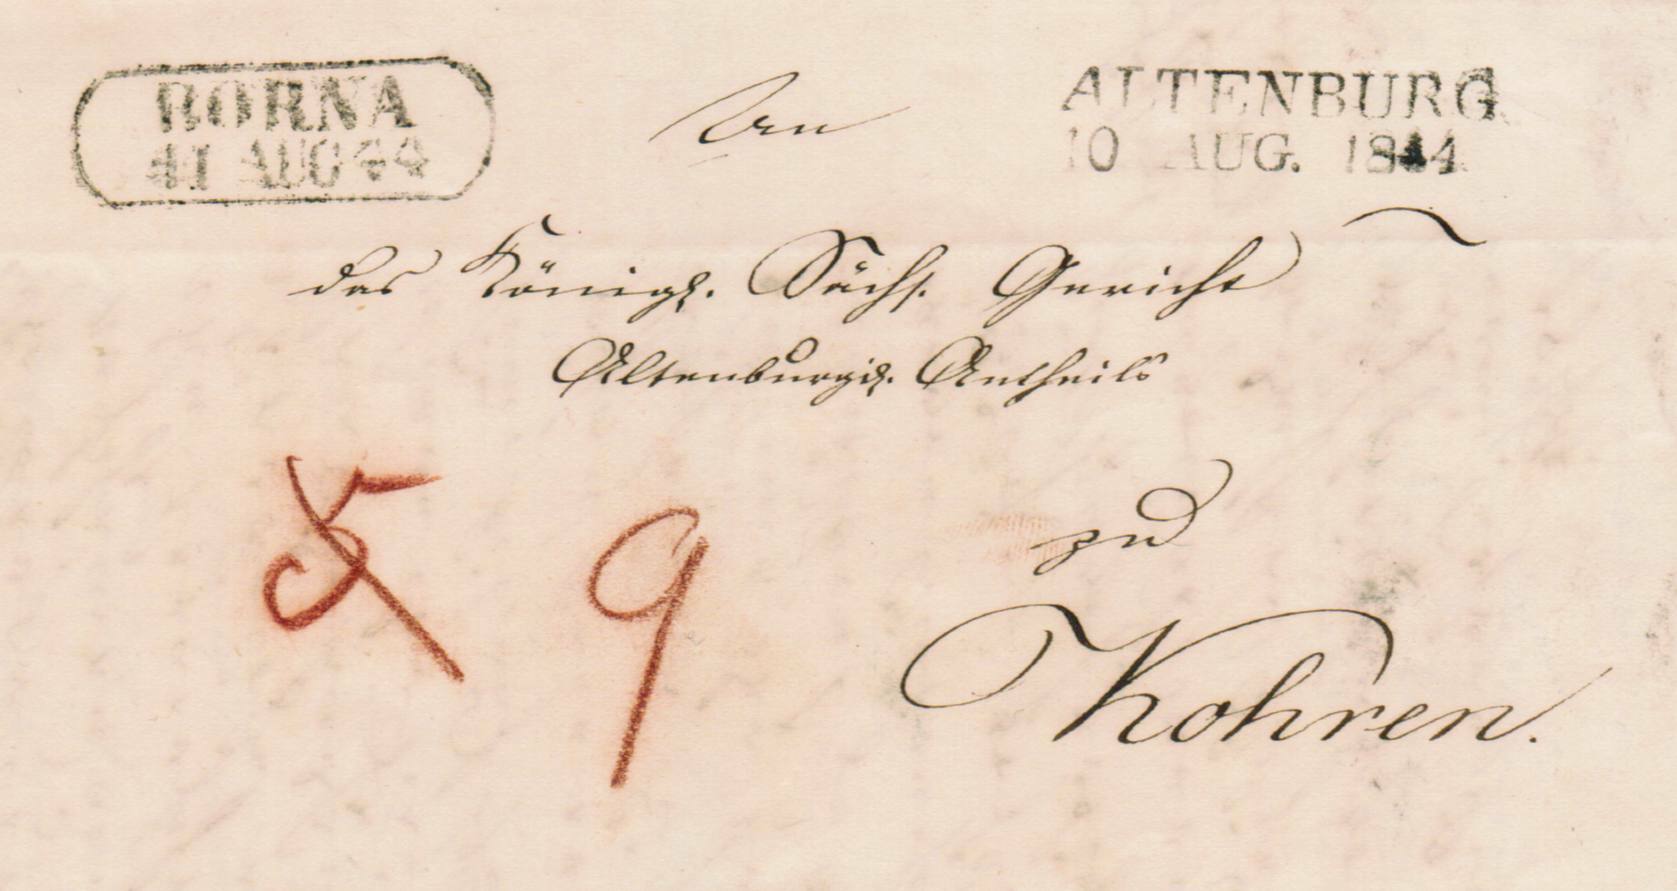 BORNA
11 AUG 44
ALTENBURG
10 AUG. 1844
An
das Königl. Sächs. Gericht
Altenburg. Antheils
zu
Kohren.
5
9